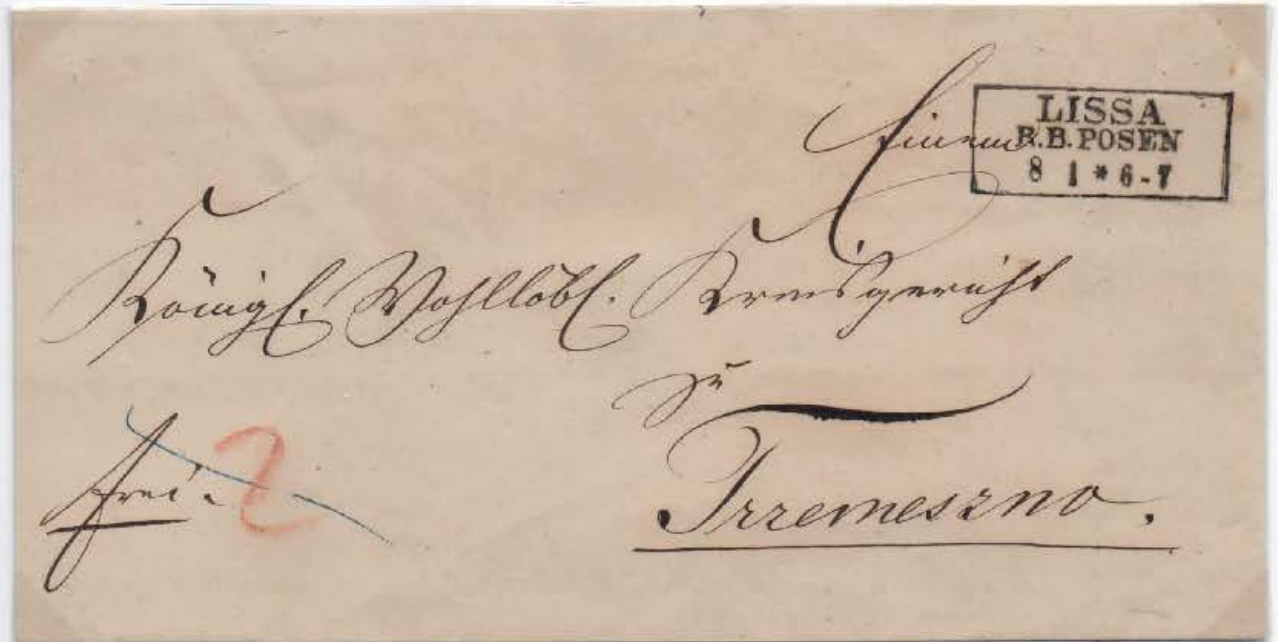 LISSA
R.B. POSEN
8 1 * 6-7
Einem
Königl. Wohllöbl. Kreisgericht
zu
Trzemeszno.
frei.
2